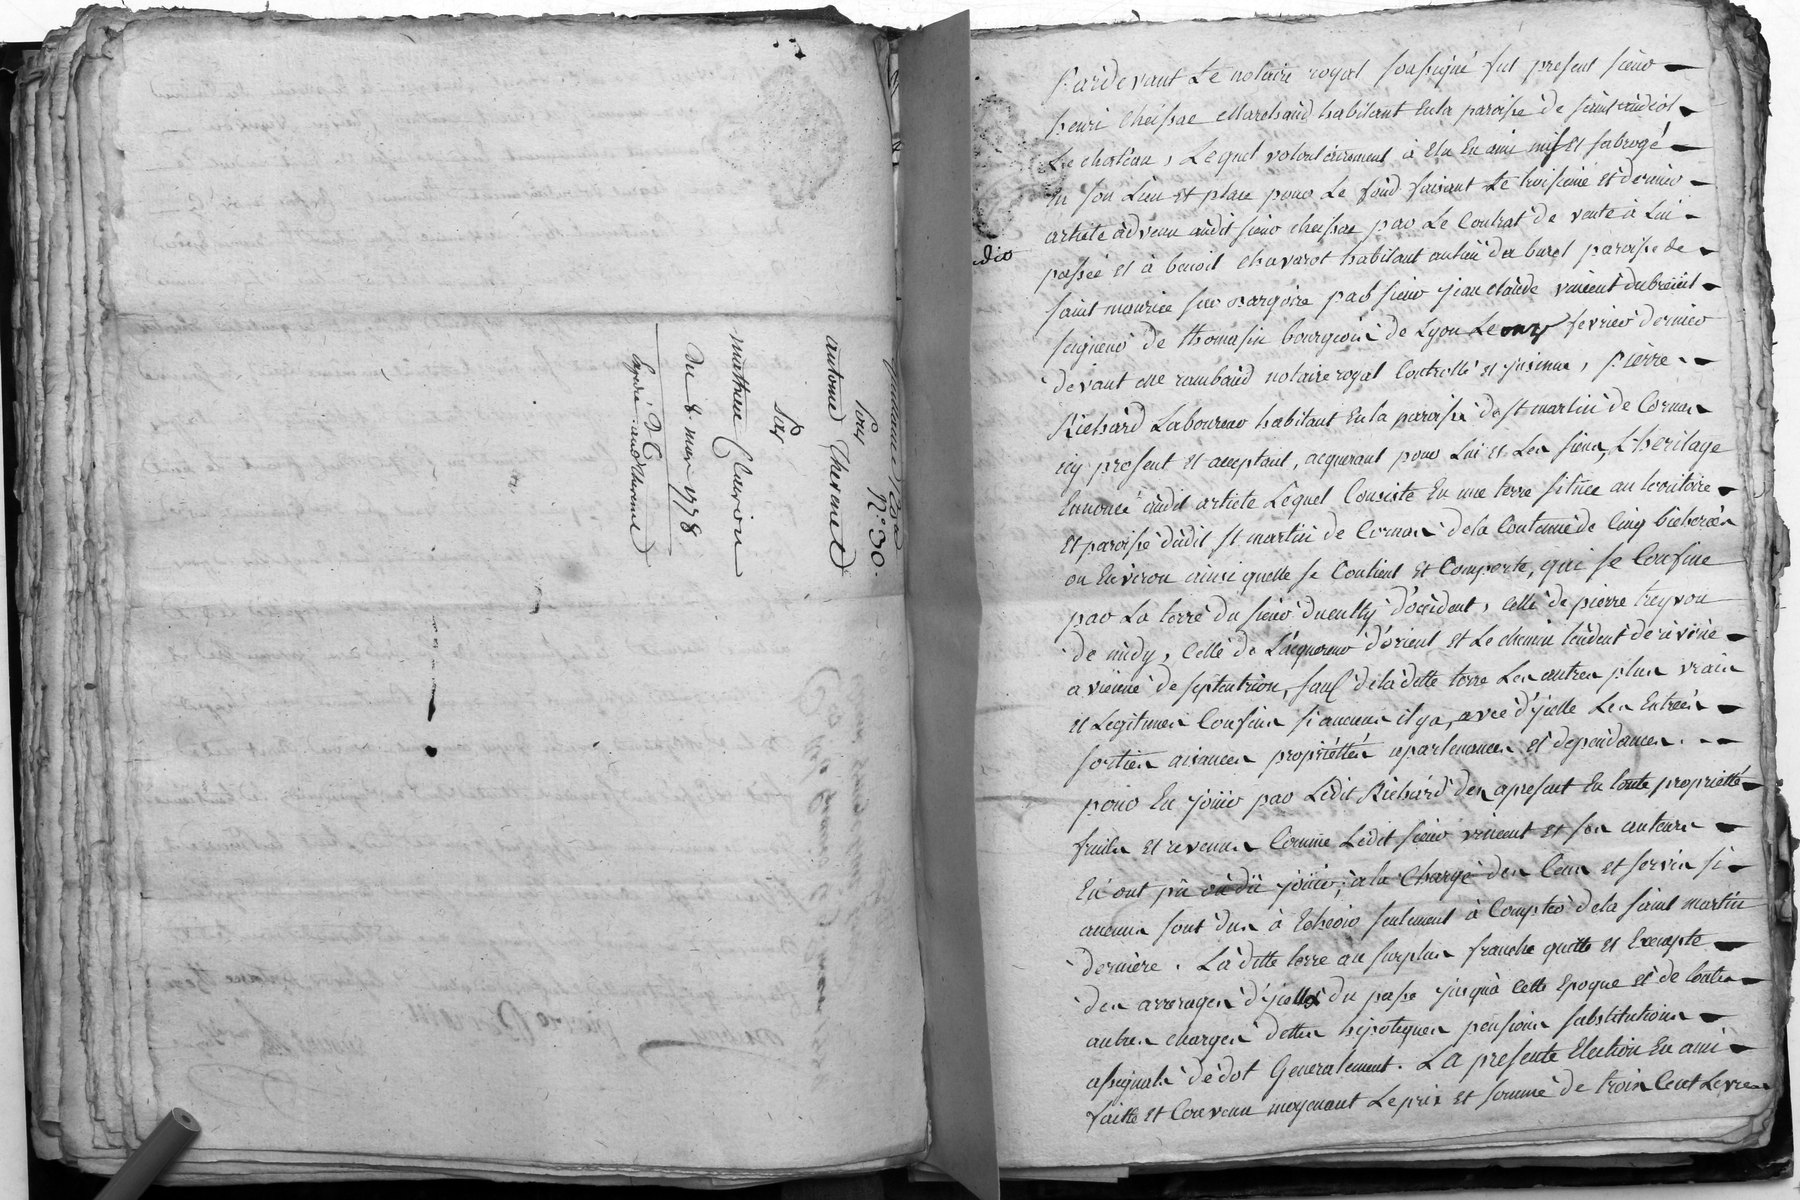 quittance 150#
N.° 30.
Pour
antoine Thevenet
Par
mathieu Clairon
Du 8 mars 1778
Expédié audt thevenet
Pardevant Le notaire royal soussigné fut present sieur
henri Cheissac Marchand habitant En la paroisse de saint andéol
Le chateau, Lequel volontairement à Elu En ami mis Et subrogé
En son Lieu et place pour Le fond faisant Le troisieme Et dernier
article advenu audit sieur cheissac par Le Contrat de vente à Lui
passée et à benoit chavarot habitant au lieu du burel paroisse de
saint maurice sur dargoire par sieur jean claude vincent dubreüil
seigneur de thomasin bourgeois de Lyon Le onze fevrier dernier
devant me rambaud notaire royal Controllé et jnsinué, pierre
Richard Laboureur habitant En la paroisse de st martin de Cornas
icy present et acceptant, acquerant pour Lui et Les siens, L'heritage
Ennoncé audit article Lequel Consiste En une terre située au territoire
Et paroisse dudit st martin de Cornas de la Contenue de Cinq bicherées
ou Environ ainsi quelle se Contient et Comporte, qui se Confine
par La terre du sieur d'occident, Celle de pierre treyvou
de midy, Celle de L'acquereur d'orient et Le chemin tendent de rivirie
a vienne de septentrion, sauf de la ditte terre Les autres plus vrais
et Legitimes Confins si aucuns il y a, avec d'jcelle Les Entrées
sorties aisances propriettés apartenances et dependances.
pour En joüir par Ledit Richard des apresent En toute proprietté
fruits et revenus Comme Ledit sieur vincent et ses auteurs
En ont pu ou dü joüir, a la Charge des Cens et servis si
aucuns sont dus à Echeoir seulement à Compter de la saint martin
derniere. La ditte terre au surplus franche quitte et Exempte
des arrerages d'jceux du passé jusqu'à cette Epoque et de toutes
autres charges dettes hipoteques pensions substitutions
assignats de dot Generalement. La presente Election En ami
faitte et Convenu moyenant Le prix et somme de trois Cent Livres